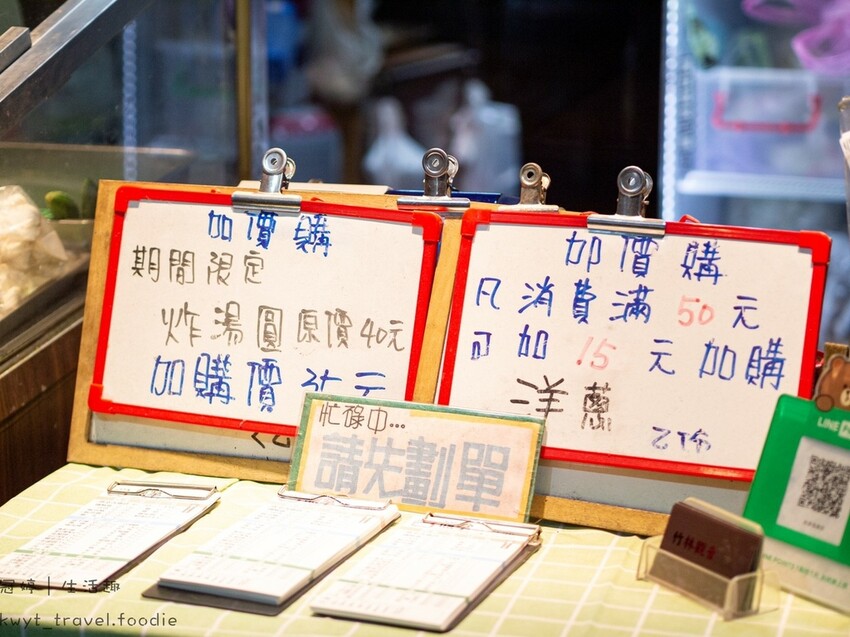 加價購
期間限定
炸湯圓原價40元
加購價35元
加價購
凡消費滿50元
可加15元加購
洋蔥
忙碌中...
請先劃單
LINE
竹林
冠婷｜生活趣
kwyt_travel.foodie